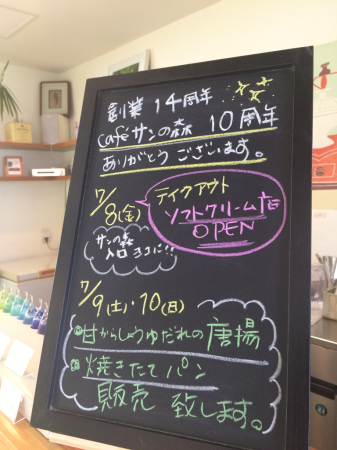 創業 14周年
café サンの森 10周年
ありがとう ございます。
7/8(金)
テイクアウト
ソフトクリーム店
OPEN
サンの森
入口 ヨコに!!
7/9(土)・10(日)
甘からしょうゆだれの唐揚
焼きたて パン
販売 致します。